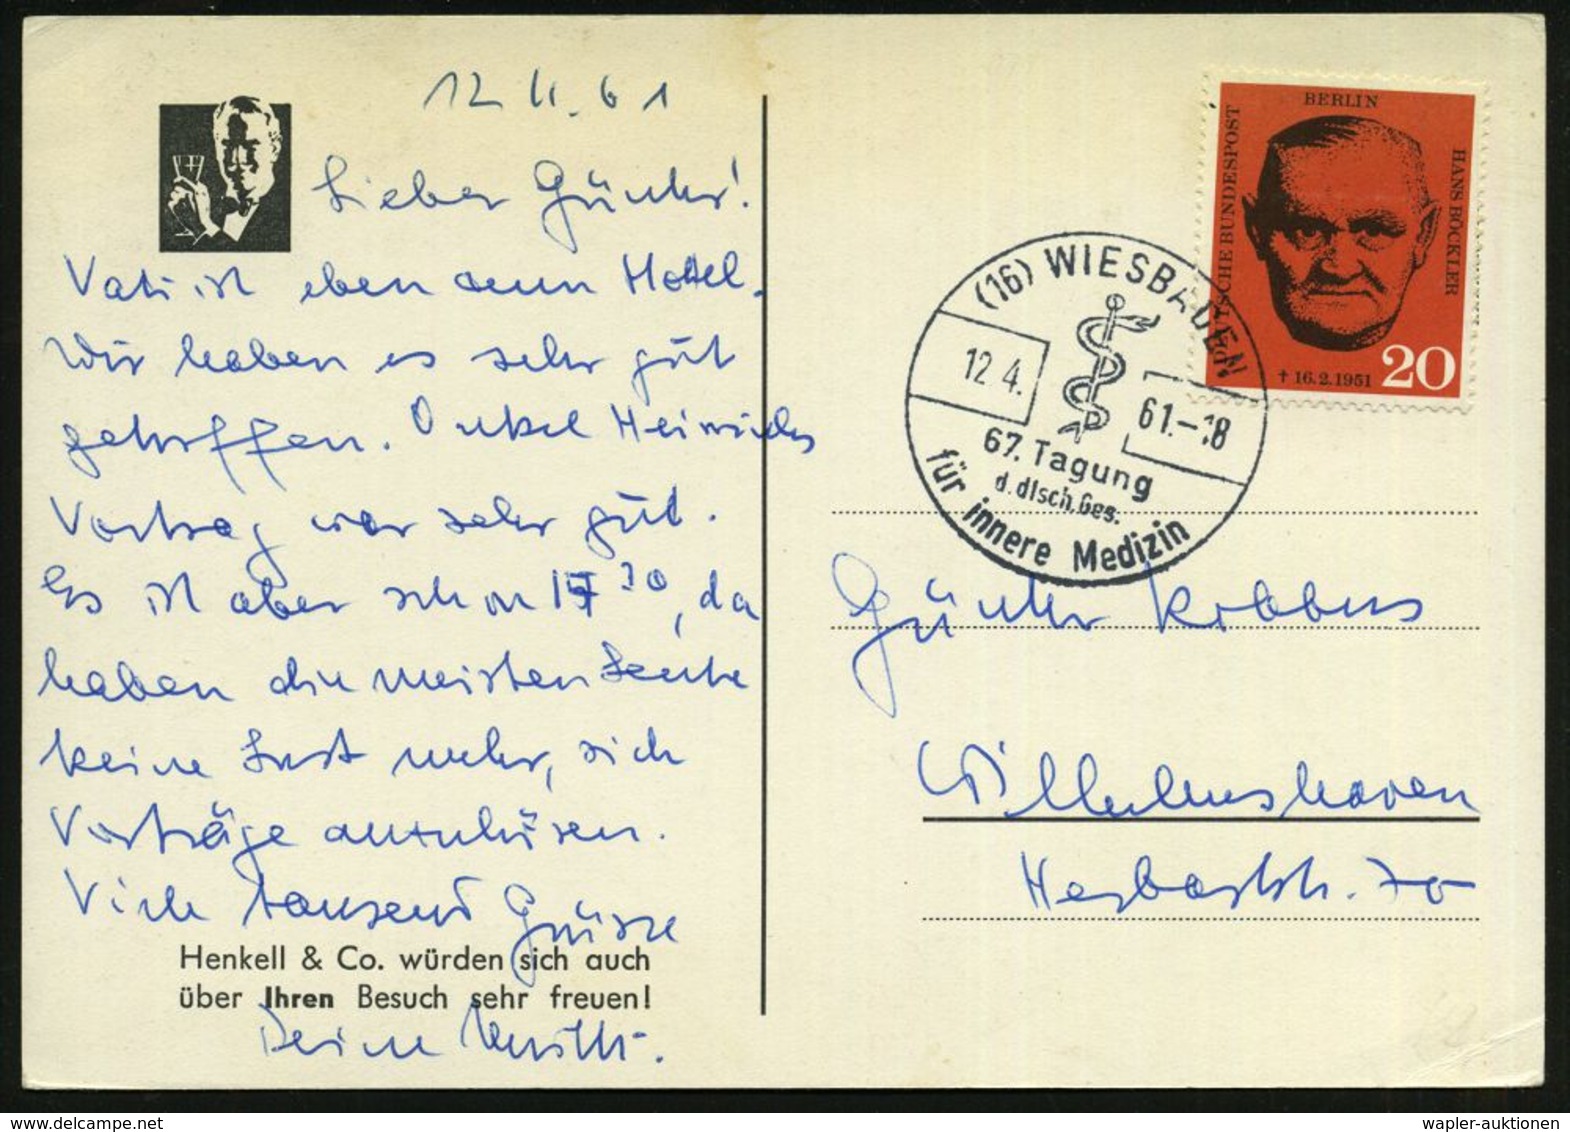 12 4. 61
Lieber Günter!
Vati ist eben am Hotel.
Wir haben es sehr gut
getroffen. Onkel Heinrichs
Vortrag war sehr gut.
Es ist aber schon 17 30, da
haben die meisten Leute
keine Lust mehr, sich
Vorträge anzuhören.
Viele tausend Grüsse
Henkell & Co. würden sich auch
über Ihren Besuch sehr freuen!
Deine
BERLIN
DEUTSCHE BUNDESPOST
HANS BÖCKLER
† 16.2.1951 20
(16) WIESBADEN
12.4. 61.-18
67. Tagung
d. dtsch. Ges.
für innere Medizin
Günter Robbers
Wilhelmshaven
Herbartstr. 70
wapler-auktionen